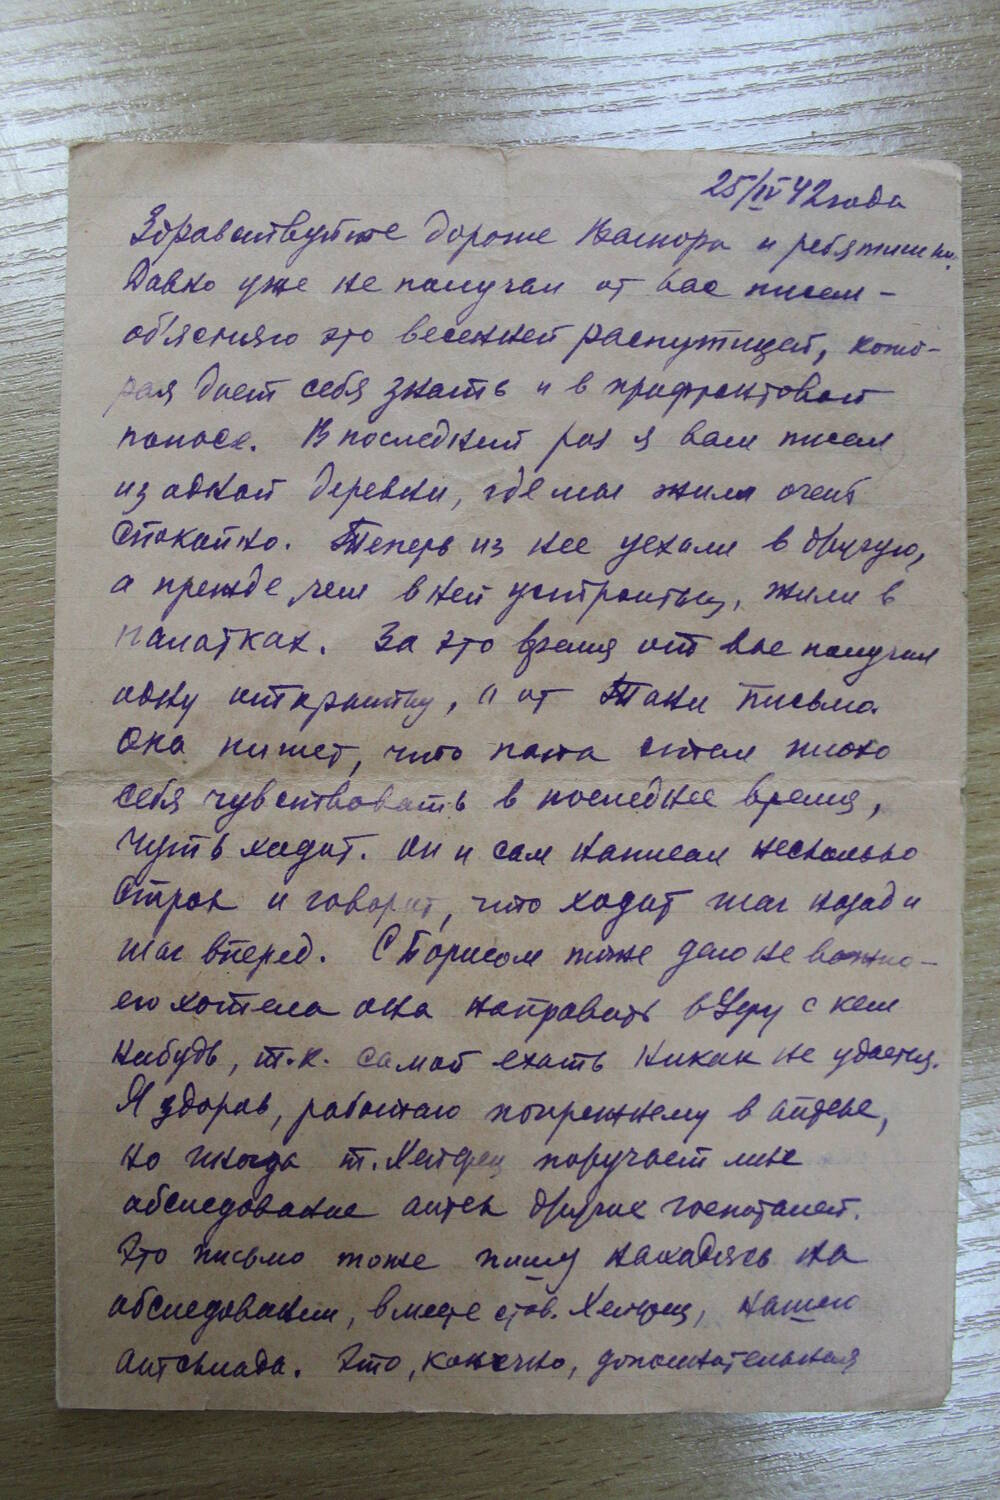 25/IV 42 года
Здравствуйте дорогие и ребятишки.
Давно уже не получал от вас писем –
об'ясняю это весенней распутицей, кото-
рая дает себя знать и в прифронтовой
полосе. В последний раз я вам писал
из одной деревни, где мы жили очень
спокойно. Теперь из нее уехали в другую,
а прежде чем в ней устроиться, жили в
палатках. За это время от вас получил
одну открытку, и от Тани письмо.
Она пишет, что папа стал плохо
себя чувствовать в последнее время,
чуть ходит. Он и сам написал несколько
строк и говорит, что ходит шаг назад и
шаг вперед. С Борисом тоже дело не важно –
его хотела она направить в Уфу с кем
нибудь, т.к. самой ехать никак не удается.
Я здоров, работаю попрежнему в аптеке,
но иногда т. поручает мне
обследование аптек других госпиталей.
Это письмо тоже пишу находясь на
обследовании, вместе с тов. нашего
аптсклада. Это, конечно, дополнительная